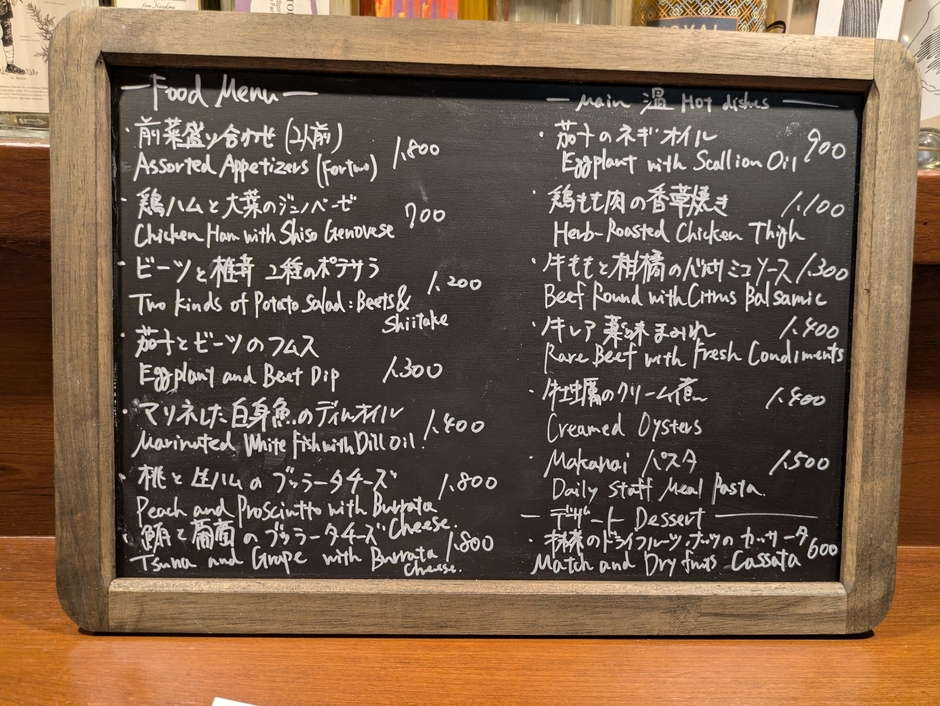 Food Menu
・前菜盛り合わせ(2人前)
Assorted Appetizers (For two) 1,800
・鶏ハムと大葉のジェノベーゼ
Chicken Ham with Shiso Genovese 700
・ビーツと椎茸 2種のポテサラ
Two kinds of Potato Salad: Beets & Shiitake 1,200
・茄子とビーツのフムス
Eggplant and Beet Dip 1,300
・マリネした白身魚のディルオイル
Marinated White Fish with Dill Oil 1,400
・桃と生ハムのブッラータチーズ 1,800
Peach and Prosciutto with Burrata Cheese.
・鮪と葡萄のブッラータチーズ 1,800
Tsuna and Grape with Burrata Cheese.
main 温 Hot dishes
・茄子のネギオイル 900
Eggplant with Scallion Oil
・鶏もも肉の香草焼き 1,100
Herb-Roasted Chicken Thigh
・牛ももと柑橘のバルサミコソース 1,300
Beef Round with Citrus Balsamic
・牛レア薬味まみれ 1,400
Rare Beef with Fresh Condiments
・牡蠣のクリーム煮 1,400
Creamed Oysters
・Makanai パスタ 1,500
Daily Staff Meal Pasta.
デザート Dessert
・抹茶のドライフルーツ、ナッツのカッサータ 600
Match and Dry fruits Cassata